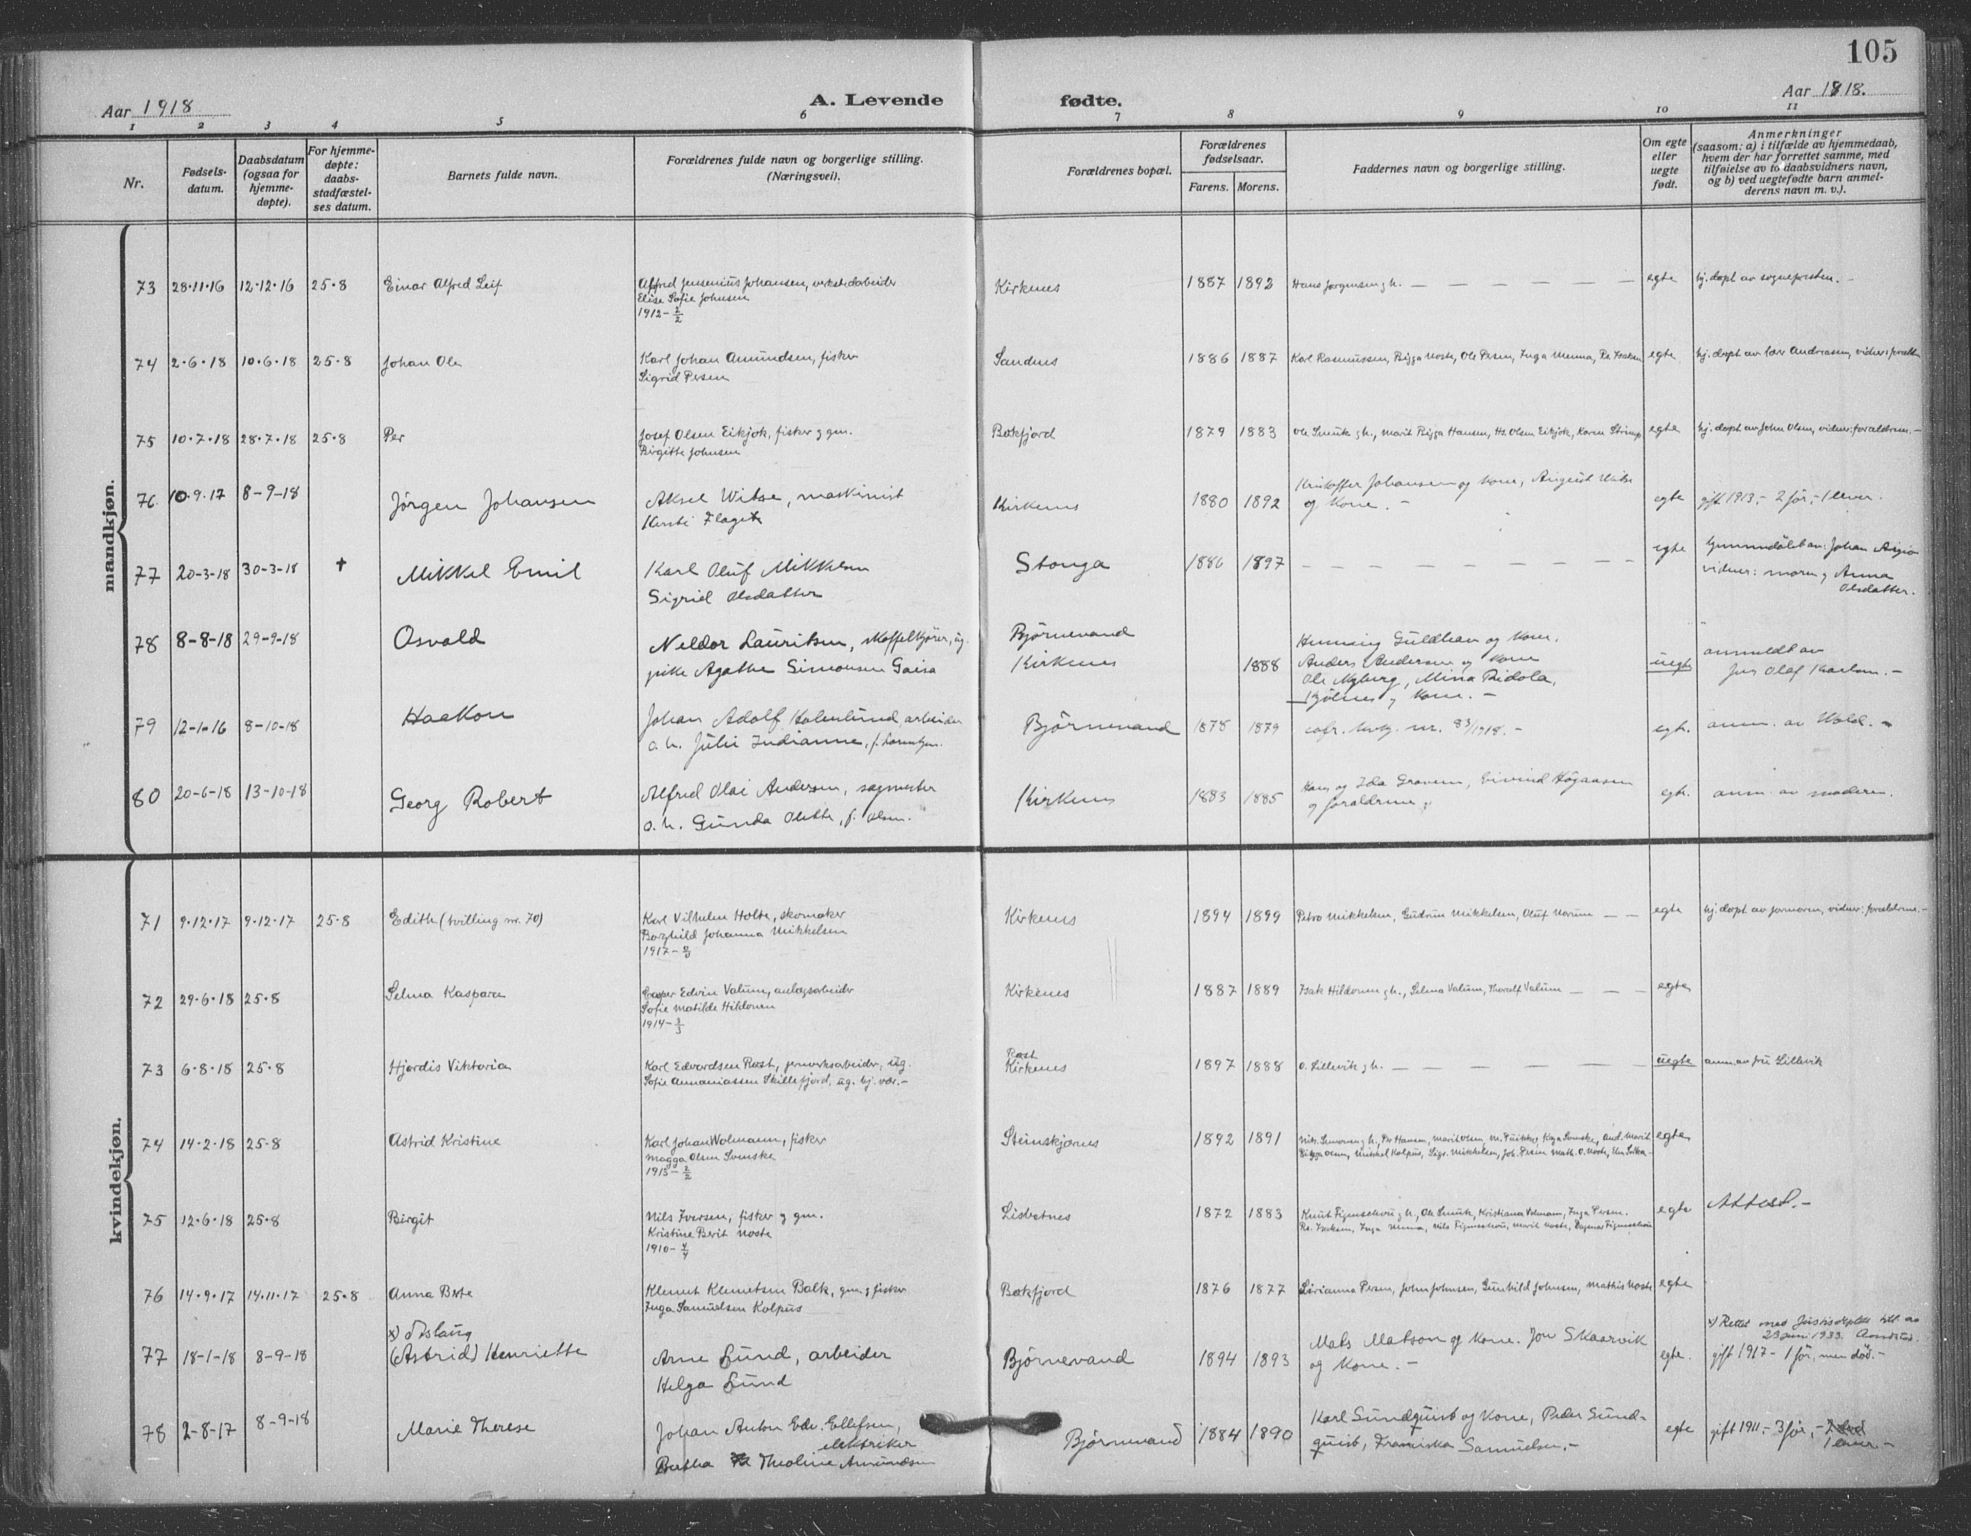 105
Aar 1918
A. Levende fødte.
Aar 1918.
1 2 3 4 5 6 7 8 9 10 11
Nr.
Fødsels-
datum.
Daabsdatum
(ogsaa for
hjemme-
døpte).
For hjemme-
døpte:
daabs-
stadfæstel-
ses datum.
Barnets fulde navn.
Forældrenes fulde navn og borgerlige stilling.
(Næringsvei).
Forældrenes bopæl.
Forældrenes
fødselsaar.
Farens. Morens.
Faddernes navn og borgerlige stilling.
Om egte
eller
uegte
født.
Anmerkninger
(saasom: a) i tilfælde av hjemmedaab,
hvem der har forrettet samme, med
tilføielse av to daabsvidners navn,
og b) ved uegtefødte barn anmel-
derens navn m. v.).
mandkjøn.
73 28·11·16 12·12·16 25·8 Einar Alfred Leif Alfred Jensenius Johansen, verkstedarbeider Kirkenes 1887 1892 Hans Jørgensen g h. — — — — — — egte hj. døpt av sognepresten. —
Elise Sofie Johnsen
1912 – 2/2
74 2·6·18 10·6·18 25·8 Johan Ole Karl Johan Amundsen, fisker Sandnes 1886 1887 Karl Rasmussen, Bigga Noste, Ole Persen, Inga Menna, Pe Isaksen egte hj. døpt av lær Andreasen, vidner: foræld
Sigrid Persen
75 10·7·18 28·7·18 25·8 Per Josef Olsen Eikjok, fisker g gm. Bøkfjord 1879 1883 Ole Smuk g h., Marit Bigga Hansen, Hs. Olsen Eikjok, Karen Strimp egte hj. døpt av John Olsen, vidner: forældrene. —
Birgitte Johnsen
76. 10·9·17 8-9-18 Jörgen Johansen Aksel Witsø, maskinist Kirkenes 1880 1892 Kristoffer Johansen og kone, August egte gift 1913, – 2 før, – 1 lever.
Kirsti Flagets og kone. –
77 20-3-18 30-3-18 + Mikkel Emil Karl Oluf Mikkelsen Stonga 1886 1897 — — — — — — egte hjemmedøbt av: Johan
Sigrid Olsdatter vidner: moren g Anna
Olsdatter.
78 8-8-18 29-9-18 Osvald Neldor Lauritsen, skaffelkjører, ug. Björnevand Henning Guldhav og kone. anmeldt av
pike Agathe Simonsen Gaisa Kirkenes 1888 Anders Andersen og kone uegte Jens Olaf Karlsen. –
Ole Nyberg, Mina Ridola,
Kjølnes g kone. –
79 12-1-16 8-10-18 Haakon Johan Adolf Holmlund arbeider Björnevand 1878 1879 cofr. kvk. nr. 83/1918. – egt. anm. av Wold. –
o. h. Julie Indianne, f. Lorentzen.
80 20-6-18 13-10-18 Georg Robert Alfred Olai Andersen, sagmester Kirkenes 1883 1885 Hans og Ida Gravem, Eivind Högaasen egt. anm. av moderen.
o. h. Gunda Olette, f. Olsen. og forældrene.
kvindekjøn.
71 9·12·17 9·12·17 25·8 Edith (tvilling nr. 70) Karl Vilhelm Holte, skomaker Kirkenes 1894 1899 Petra Mikkelsen, Gudrun Mikkelsen, Oluf Norum — — egte hj. døpt av jormoren, vidner: forældrene. –
Borghild Johanna Mikkelsen
1917 –
72 29·6·18 25·8 Selma Kaspara Casper Edvin Valum, anlægsarbeider Kirkenes 1887 1889 Isak Hildonen g h., Selma Valum, Thoralf Valum — — — egte
Sofie Matilde Hildonen
1914 – 3/3
73 6·8·18 25·8 Hjørdis Viktoria Karl Edvardsen Rost, jernverksarbeider, ug. Rost
Kirkenes 1897 1888 O. Lillevik g h. — — — — — — uegte anm. av fru Lillevik
Sofie Annaniassen Skillefjord, ug. hj. vær. –
74 14·2·18 25·8 Astrid Kristine Karl Johan Wolmann, fisker Steinskjærnes 1892 1891 Nils g h., Per Hansen, Marit Olsen, M. Puikko, Kaja Svenske, And. Marit egte
Magga Olsen Svenske Bigga Olsen, Mikkel Kolpus, Sigr. Mikkelsen, Joh. Persen Math. O. Noste,
1915 – 2/2
75 12·6·18 25·8 Birgit Nils Iversen, fisker g gm. Lisbetnes 1872 1883 Knut Figenschou g h., Ole Smuk, Kristiana Volmann, Inga Persen. egte Attest. –
Kristine Berit Noste Pe. Isaksen, Inga Menna, Nils Figenschou, Marit Noste, Dagmar Figenschou
1910 – 4/4
76 14·9·17 14·11·17 25·8 Anna Berte Klemet Klemetsen Balk, gm. g fisker Bøkfjord 1876 1877 Livianna Persen, John Johnsen, Gunhild Johnsen, Mathis Noste egte
Inga Samuelsen Kolpus
x) Aslaug x) Rettet med Justisdeptets till. av
23 juni 1933.
77 18-1-18 8-9-18 (Astrid) Henriette Arne Lund, arbeider Björnevand 1894 1893 Mats Matson og kone. Jon Skaarvik egte. gift 1917 – 1 før, men död. –
Helga Lund og kone. –
78 2-8-17 8-9-18 Marie Therese Johan Anton Edv. Ellefsen, Björnevand 1884 1890 Karl Sundquist og kone, Peder Sund- egte gift 1911, – 3 før, –
elektriker quist, Franciska Samuelsen. – 1 lever. –
Bertha Theoline Amundsen